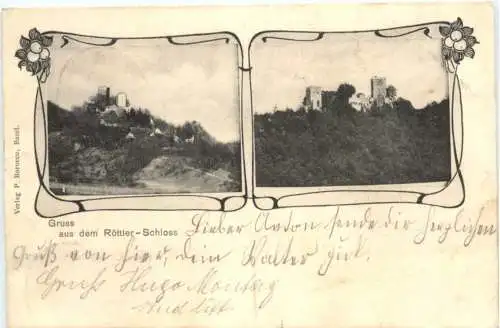 Verlag P. Borucco, Basel.
Gruss
aus dem Röttler-Schloss
Lieber Anton sende dir herzlichen
Gruß von hier, dein Walter
Gruss Hugo Montag